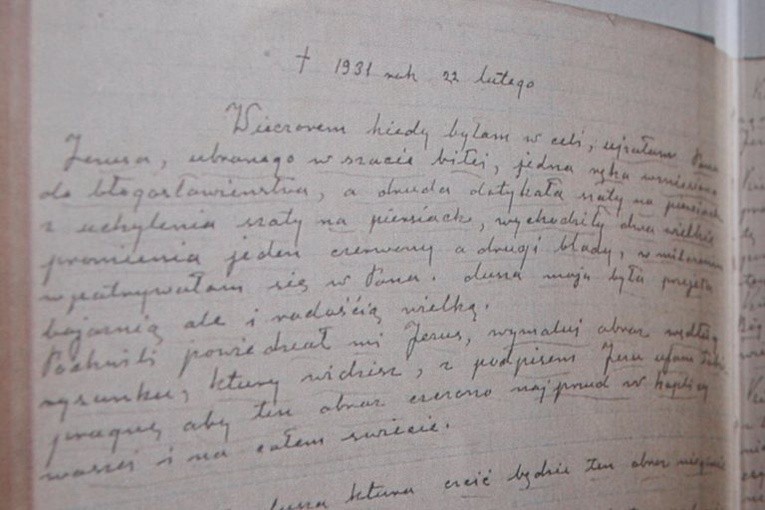 † 1931 rok 22 lutego
Wieczorem kiedy byłam w celi, ujrzałam Pana
Jezusa, ubranego w szacie biłej, jedna ręka wzniesiona
do błogosławieństwa, a druda dotykała szaty na piersiach
z uchylenia szaty na piersiach, wychodziły dwa wielkie
promienia jeden czerwony a drugi blady, w milczeniu
wpatrywałam się w Pana. dusza moja była przejęta
bojaźnią ale i radością wielką.
Po chwili powiedział mi Jezus, wymaluj obraz według
rysunku, który widzisz, z podpisem Jezu ufam Tobie
pragnę aby ten obraz czczono najprzud w kaplicy
waszej i na całem świecie.
dusza która czcić będzie ten obraz nie zginie